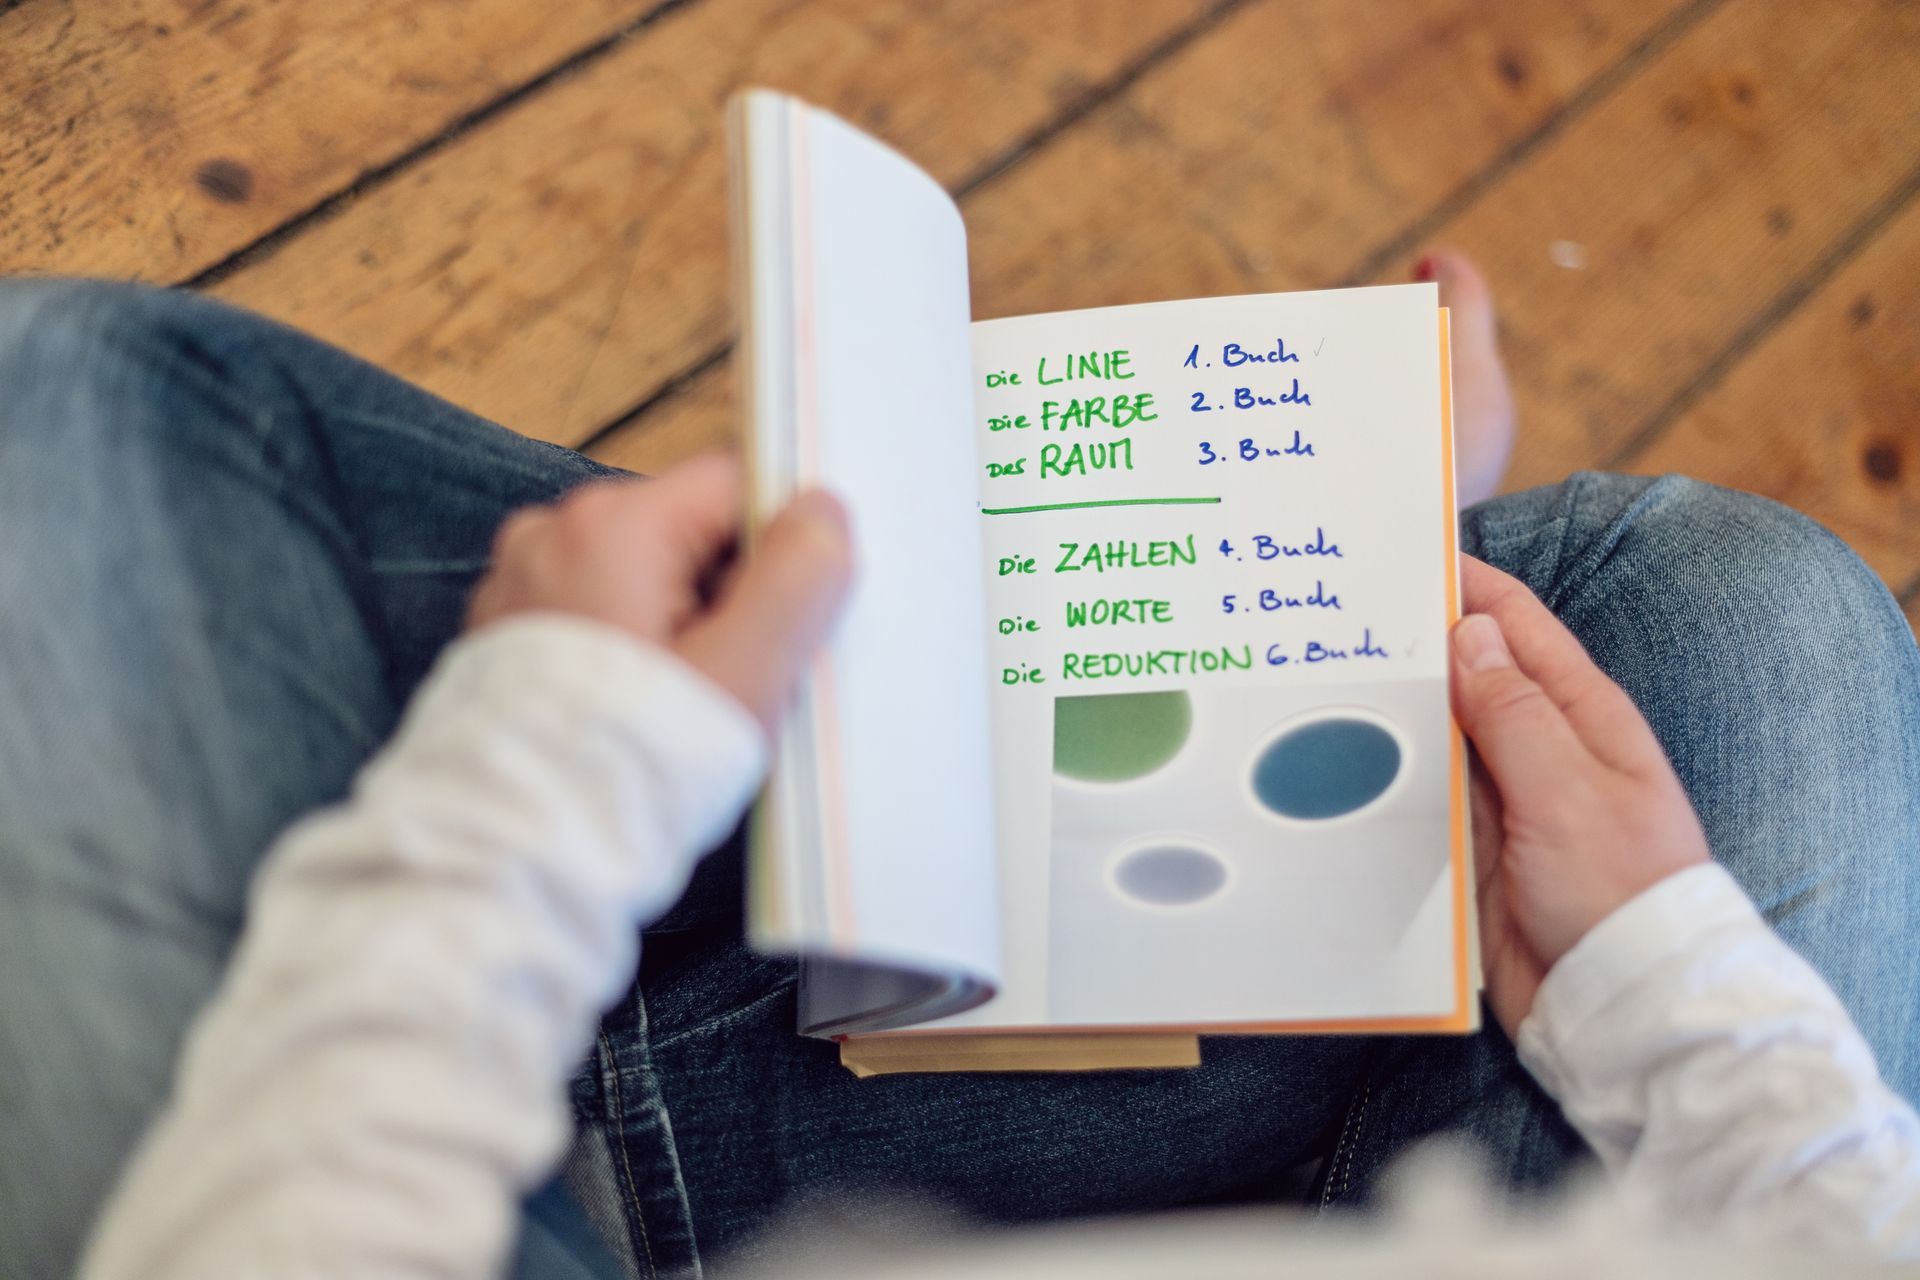 Die LINIE 1. Buch
Die FARBE 2. Buch
Der RAUM 3. Buch
Die ZAHLEN 4. Buch
Die WORTE 5. Buch
Die REDUKTION 6. Buch